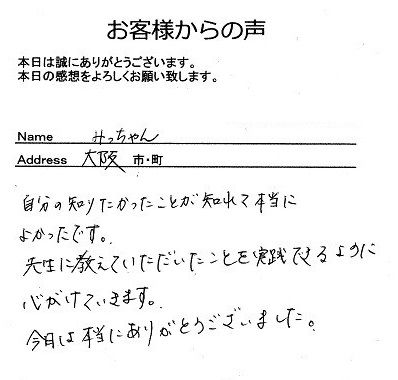 お客様からの声
本日は誠にありがとうございます。
本日の感想をよろしくお願い致します。
Name みっちゃん
Address 大阪 市・町
自分の知りたかったことが知れて本当に
よかったです。
先生に教えていただいたことを実践できるように
心がけていきます。
今日は本当にありがとうございました。